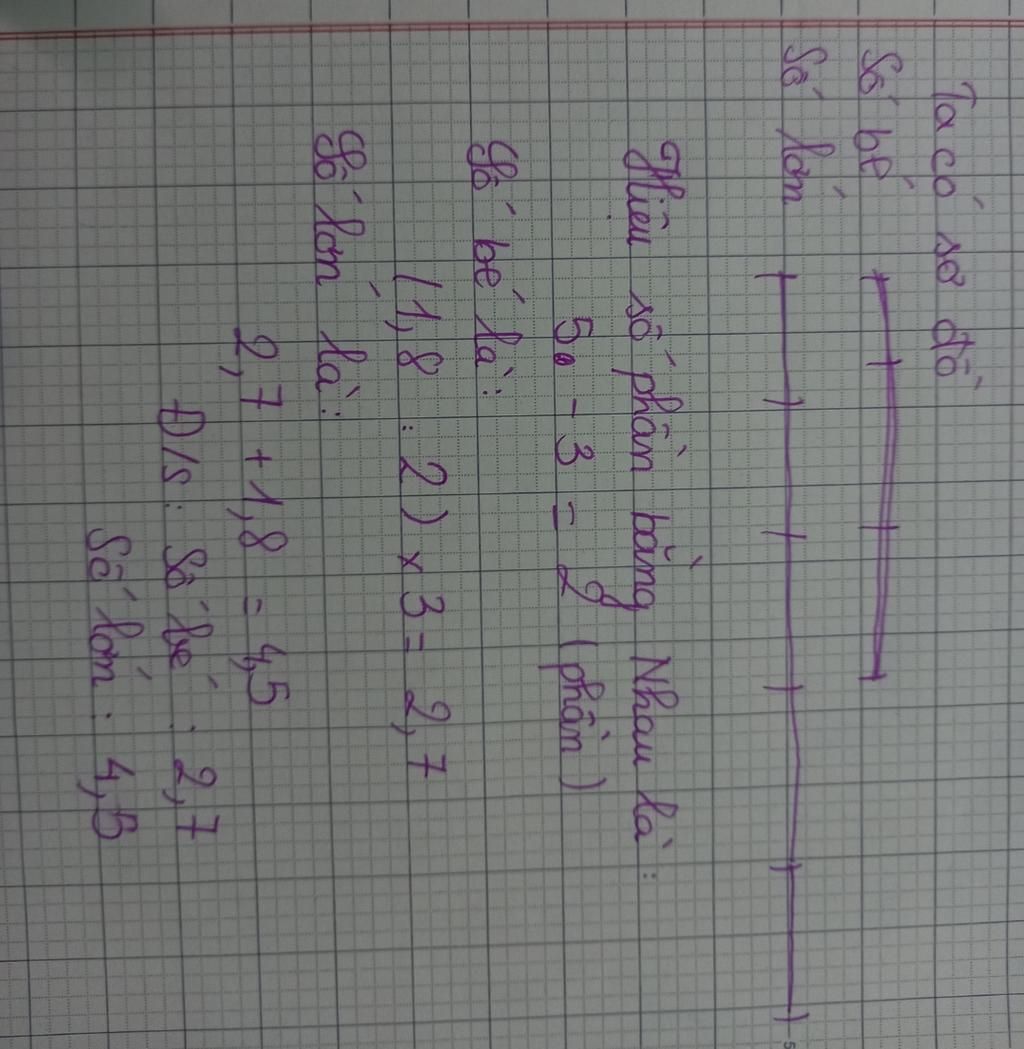 Ta có sơ đồ
Số bé
Số lớn
Hiệu số phần bằng Nhau là:
5 - 3 = 2 (phần)
Số bé là:
(1,8 : 2) x 3 = 2,7
Số lớn là:
2,7 + 1,8 = 4,5
Đ/s: Số bé : 2,7
Số lớn : 4,5